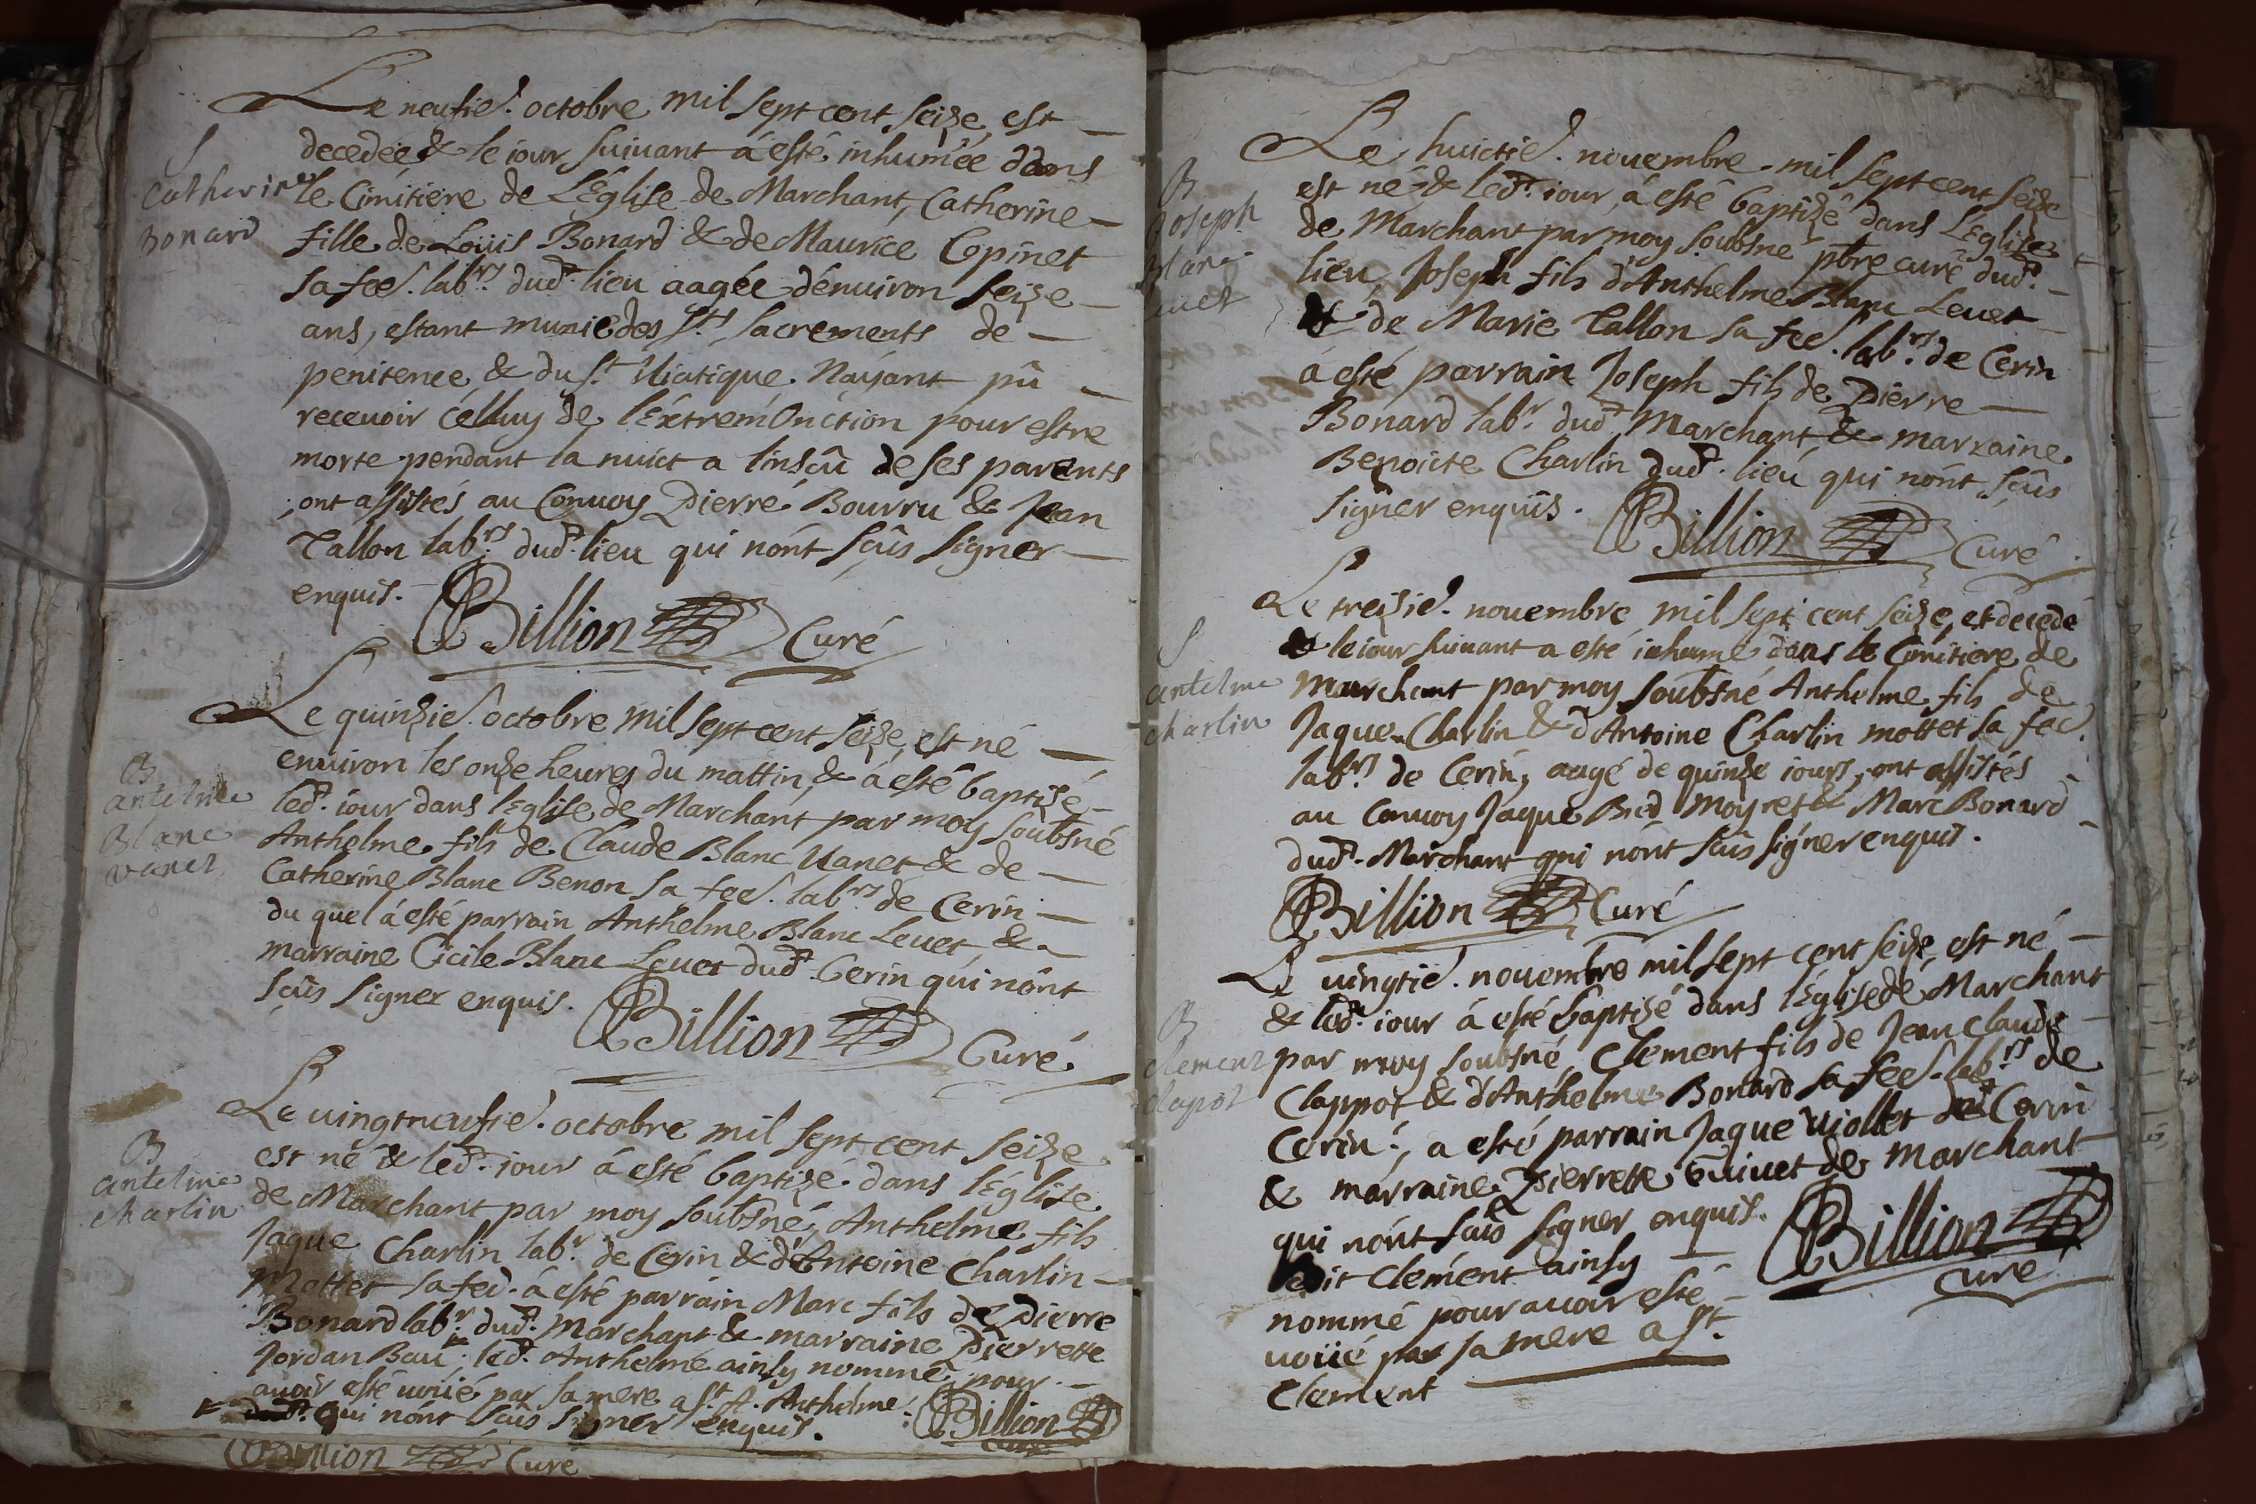 Le neufie. octobre mil sept cent seize est
decedée & le iour suiuant á esté inhumée dans
S
Catherine
Bonard
le Cimitiere de L'Eglise de Marchant, Catherine
fille de Loüis Bonard & de Maurice Copinet
sa fee. labrs. dud. lieu aagée d'énuiron seize
ans, estant munie des Sts. sacrements de
penitence & du St. Uiatique. Náÿant pû
receuoir celluy de l'éxtrem'Onction pour estre
morte pendant la nuict a l'insçû de ses parents
; ont assistés au Conuoy Pierre Bourru & Jean
Tallon labrs. dud. lieu qui nónt sçûs signer
enquis.
Billion Curé
Le quinzie. octobre mil sept cent seize est né
enuiron les onze heures du mattin, & á esté baptizé
B
antelme
Blanc
vanet
led. iour dans l'Eglise de Marchant par moy soubsné
Anthelme fils de Claude Blanc Uanet & de
Catherine Blanc Benon sa fee. labrs de Cerin
du quel á esté parrain Anthelme Blanc Leuet &
marraine Cicile Blanc Leuet dud. Cerin qui nónt
sçûs signer enquis.
Billion Curé
Le uingtneufie. octobre mil sept cent seize
est né & led. iour á esté baptizé dans l'église
B
antelme
charlin
de Marchant par moy soubsné, Anthelme fils
Jaque Charlin labr. de Cerin & d'Antoine Charlin
Mottet sa fee. á esté parrain Marc fils de Pierre
Bonard labr. dud. Marchant & marraine Pierrette
Jordan Bau ; led. Anthelme ainsy nommé pour
auoir esté uoüé par sa mere a St. A. Anthelme.
qui nónt sçûs signer enquis.
Billion
Curé
Billion Curé
Le huictie. nouembre mil sept cent seize
est né & led. iour á esté baptizé dans L'Eglise
B
Joseph
blanc
leuet
de Marchant par moy soubsné pbre curé dud.
lieu, Joseph fils d'Anthelme Blanc Leuet
& de Marie Tallon sa fee. labrs. de Cerin
á esté parrain Joseph fils de Pierre
Bonard labr. dud. Marchant & marraine
Benoicte Charlin dud. lieu qui nónt sçûs
signer enquis.
Billion Curé
Le treizie. nouembre mil sept cent seize, et decedé
& le iour suiuant a esté inhumé dans le Cimitiere de
S
antelme
charlin
Marchant par moy soubsné Anthelme fils de
Jaque Charlin & d'Antoine Charlin mottet sa fee.
labrs de Cerin, aagé de quinze iours, ont assistés
au Conuoy Jaque Bied Moyret & Marc Bonard
dud. Marchant qui nónt sçûs signer enquis.
Billion Curé
Le uingtie. nouembre mil sept cent seize, est né
& led. iour á esté baptizé dans l'Eglise de Marchant
B
clement
clapot
par moy soubsné, Clement fils de Jean Claude
Clappot & d'Anthelme Bonard sa fee. labrs de
Cerin, a esté parrain Jaque Uiollet de Cerin
& marraine Pierrette Guiuet de Marchant
qui nónt sçûs signer enquis.
ledit Clement ainsy
nommé pour auoir esté
uoüé par sa mere a St.
Clement
Billion
Curé